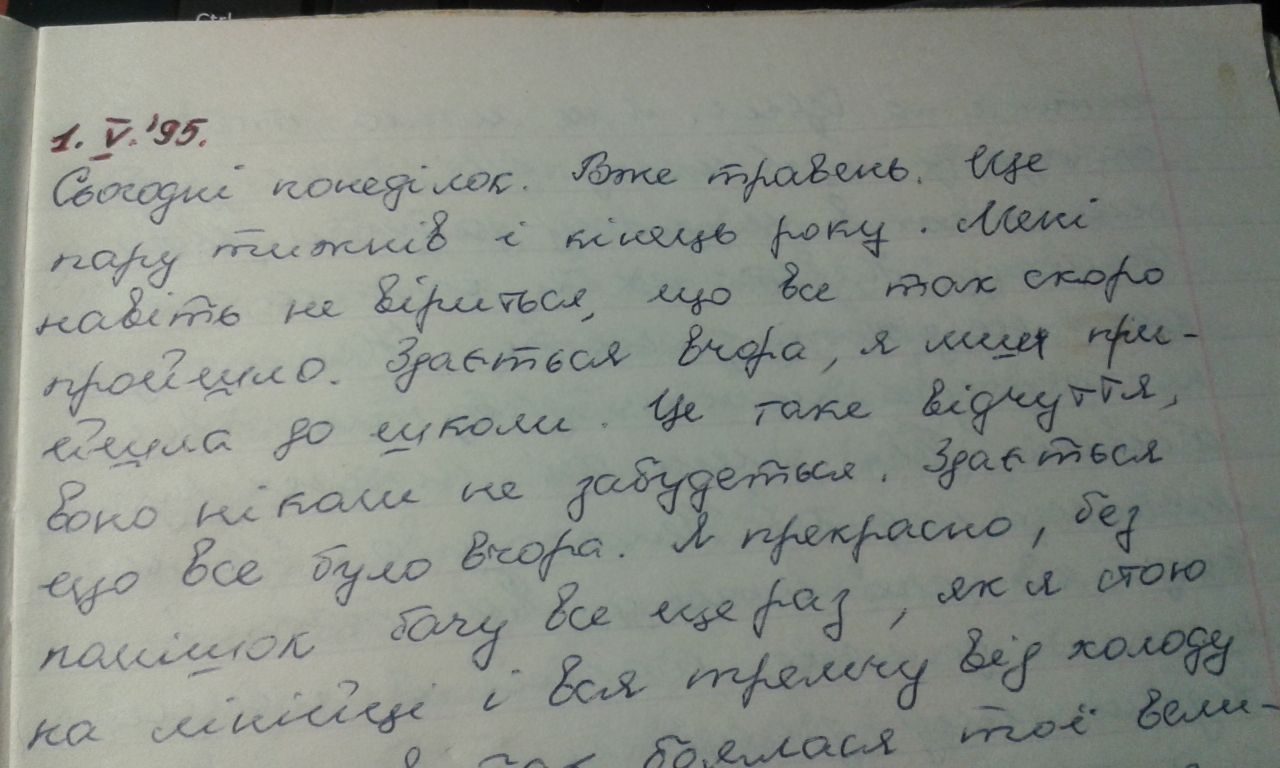 Ctrl
1. V. '95.
Сьогодні понеділок. Вже травень. Ще
пару тижнів і кінець року. Мені
навіть не віриться, що все так скоро
пройшло. Здається вчора, я лиш при-
йшла до школи. Це таке відчуття,
воно ніколи не забудеться. Здається
що все було вчора. Я прекрасно, без
помішок бачу все ще раз, як я стою
на лінійці і вся тремчу від холоду
так боялася тої вели-